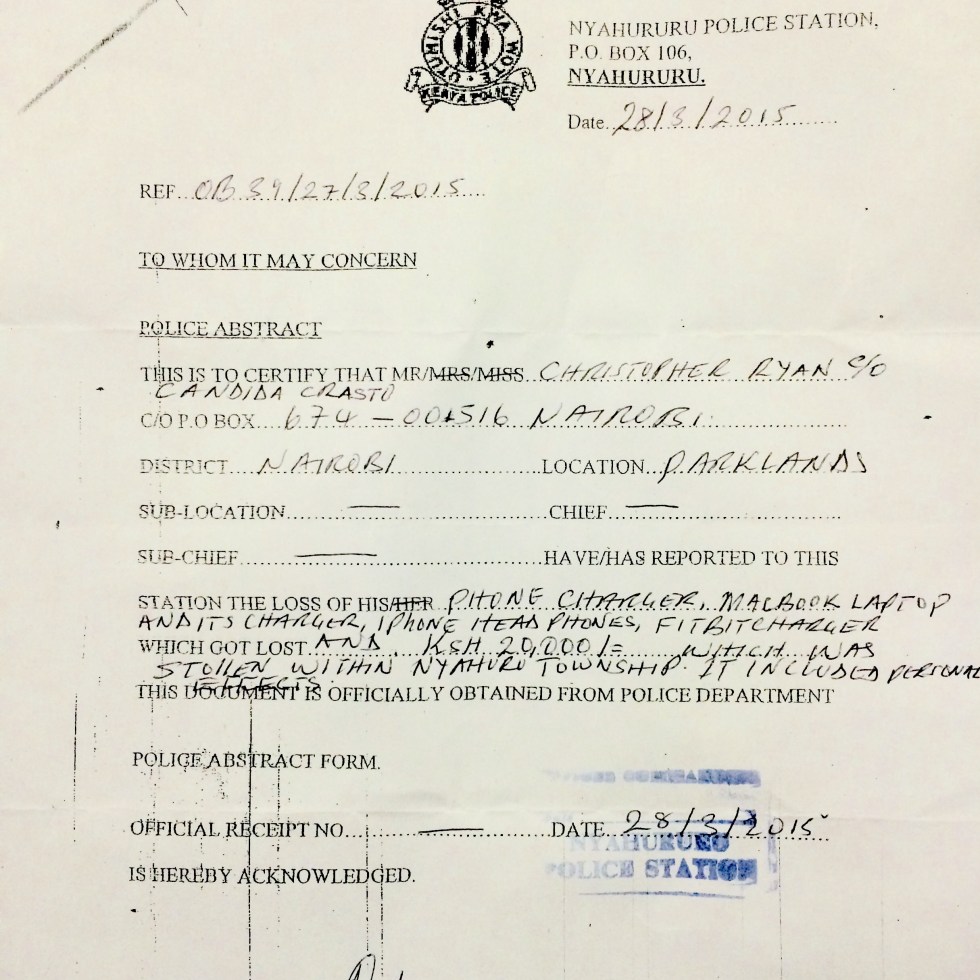 UTUMISHI KWA WOTE
KENYA POLICE
NYAHURURU POLICE STATION,
P.O. BOX 106,
NYAHURURU.
Date. 28/3/2015
REF. OB 39/27/3/2015
TO WHOM IT MAY CONCERN
POLICE ABSTRACT
THIS IS TO CERTIFY THAT MR/MRS/MISS CHRISTOPHER RYAN C/O
CANDIDA CRASTO
C/O P.O BOX 674 – 00516 NAIROBI
DISTRICT NAIROBI LOCATION PARKLANDS
SUB-LOCATION — CHIEF —
SUB-CHIEF — HAVE/HAS REPORTED TO THIS
STATION THE LOSS OF HIS/HER PHONE CHARGER, MACBOOK LAPTOP
AND ITS CHARGER, IPHONE HEAD PHONES, FITBIT CHARGER
WHICH GOT LOST AND KSH 20,000/= WHICH WAS
STOLLEN WITHIN NYAHURU TOWNSHIP. IT INCLUDED PERSONAL
EFFECTS
THIS DOCUMENT IS OFFICIALLY OBTAINED FROM POLICE DEPARTMENT
POLICE ABSTRACT FORM.
OFFICIAL RECEIPT NO. — DATE 28/3/2015
NYAHURURU
POLICE STATION
IS HEREBY ACKNOWLEDGED.